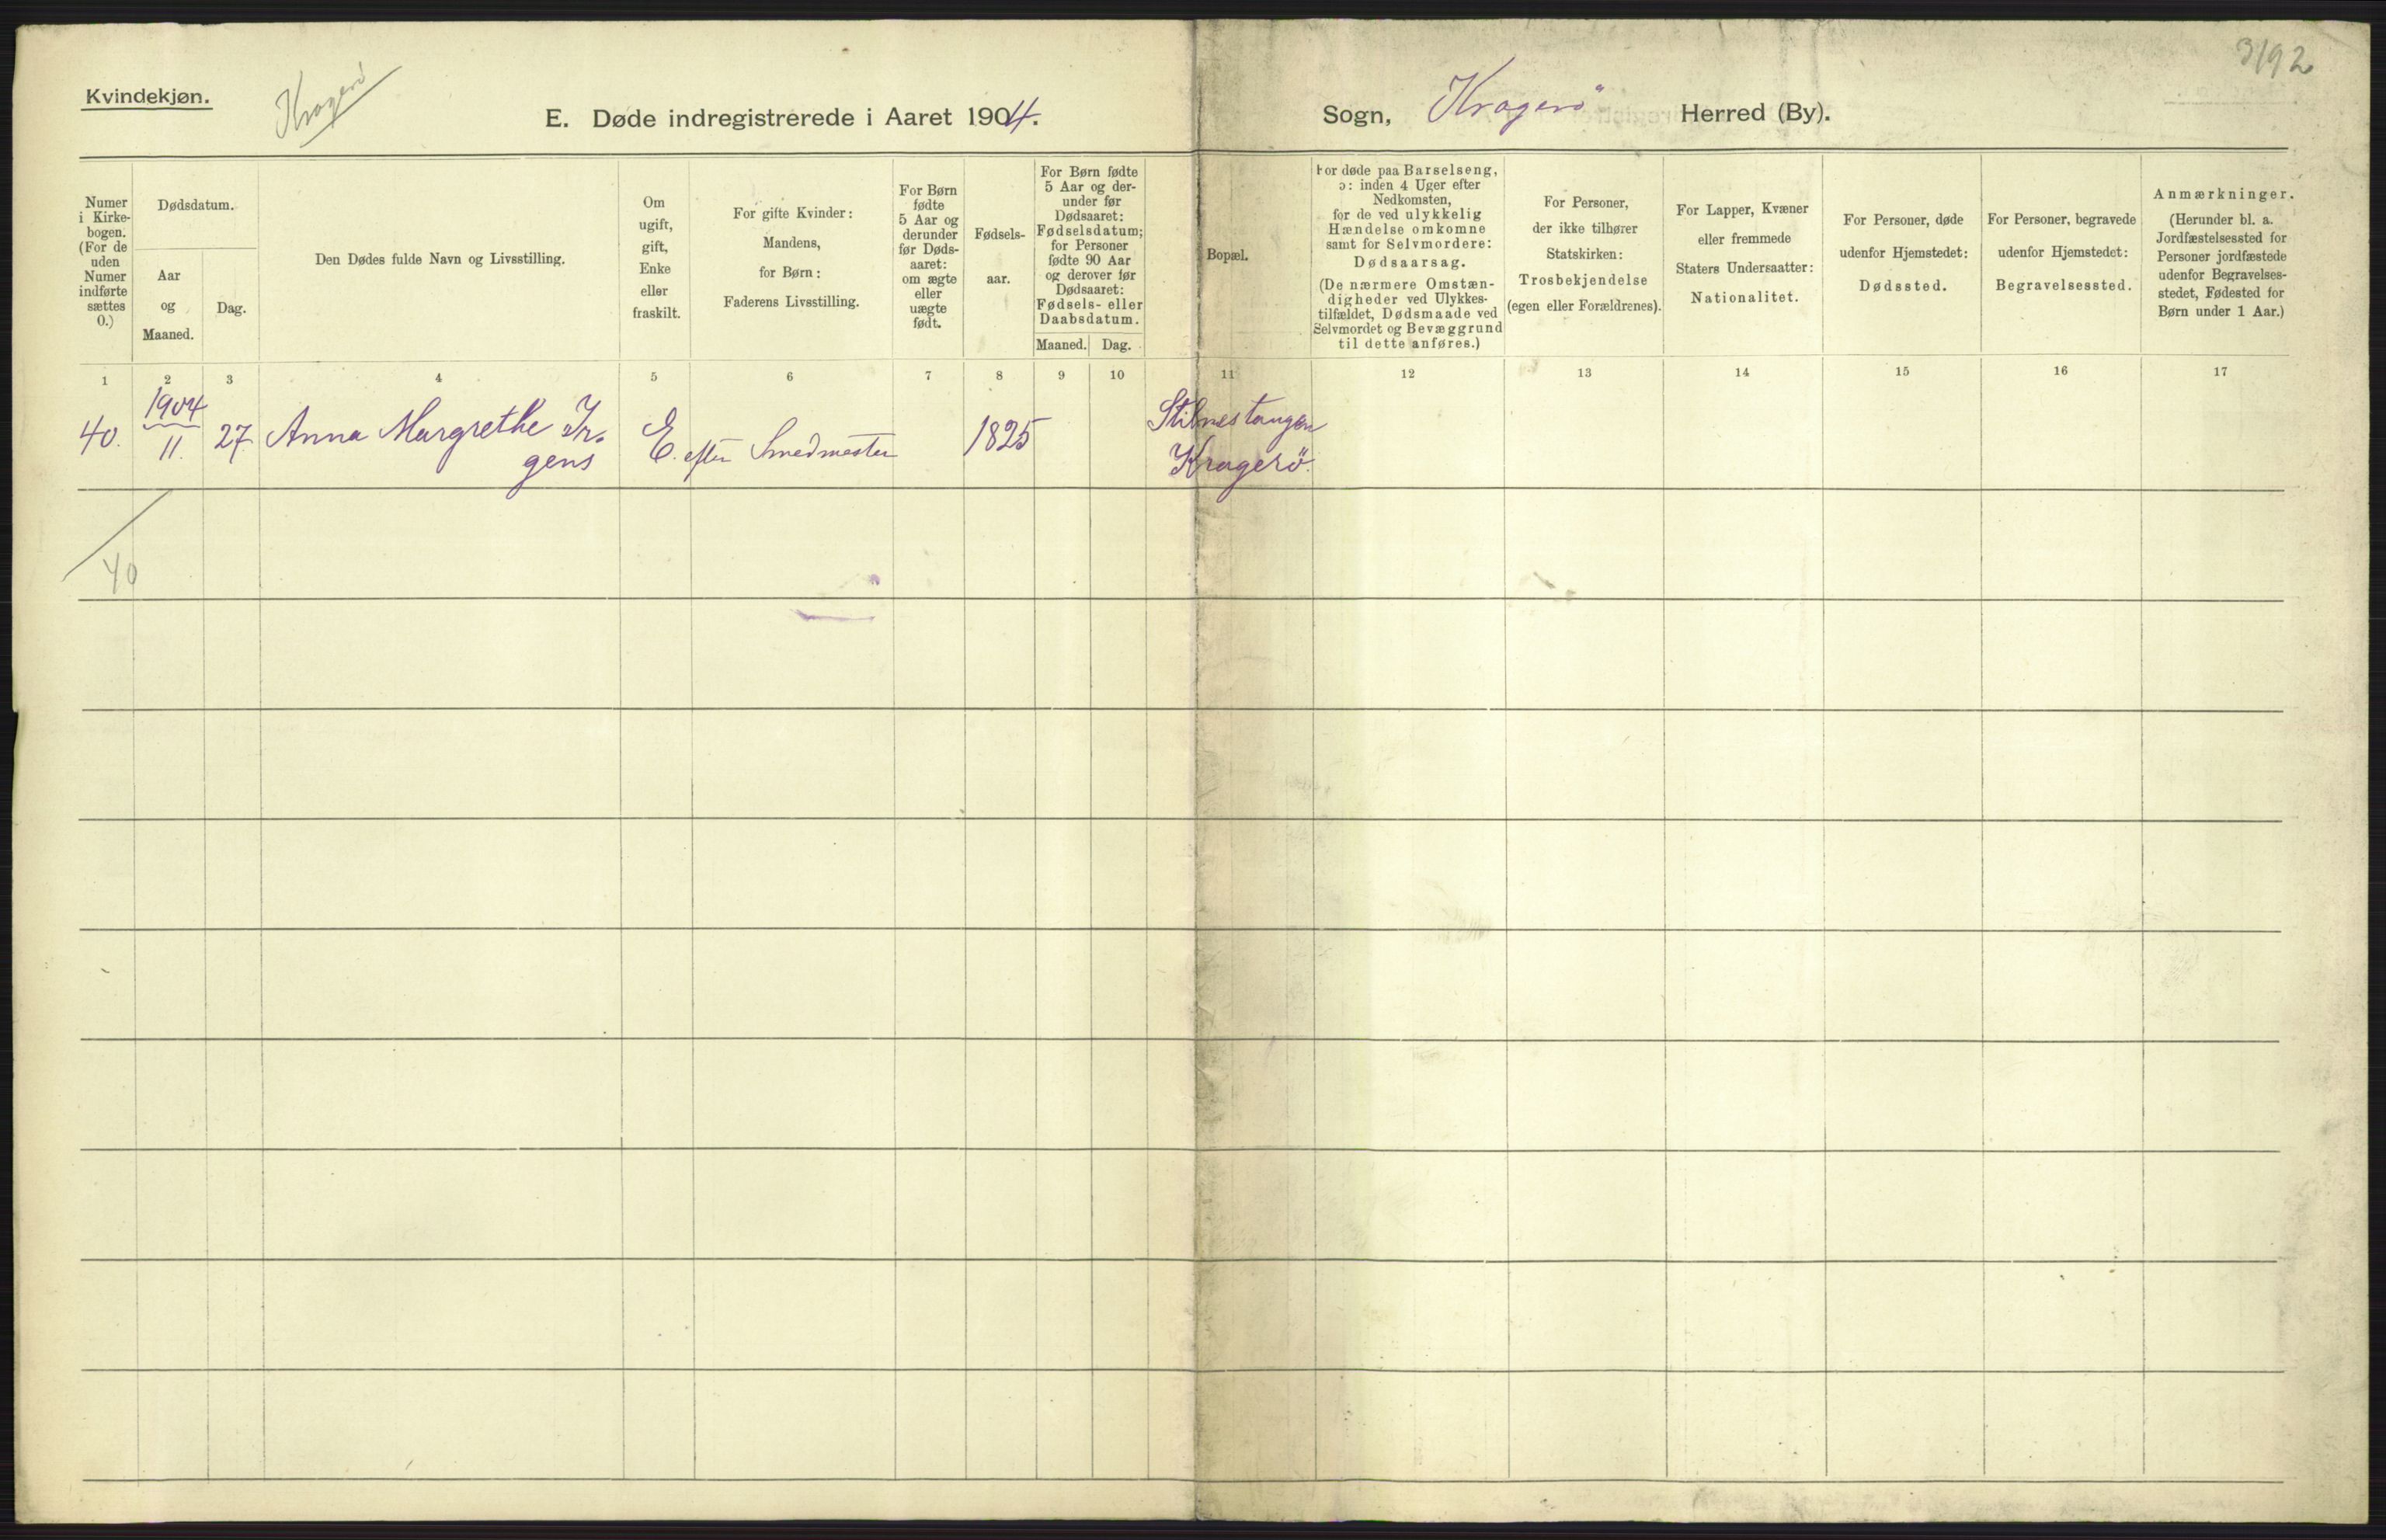 Kvindekjøn.
Kragerö
E. Døde indregistrerede i Aaret 1904.
Sogn, Kragerö Herred (By).
3192
Numer
i Kirke-
bogen.
(For de
uden
Numer
indførte
sættes
0.)
Dødsdatum.
Aar
og
Maaned.
Dag.
Den Dødes fulde Navn og Livsstilling.
Om
ugift,
gift,
Enke
eller
fraskilt.
For gifte Kvinder:
Mandens,
for Børn:
Faderens Livsstilling.
For Børn
fødte
5 Aar og
derunder
før Døds-
aaret:
om ægte
eller
uægte
født.
Fødsels-
aar.
For Børn fødte
5 Aar og der-
under før
Dødsaaret:
Fødselsdatum;
for Personer
fødte 90 Aar
og derover før
Dødsaaret:
Fødsels- eller
Daabsdatum.
Maaned. Dag.
Bopæl.
For døde paa Barselseng,
ɔ: inden 4 Uger efter
Nedkomsten,
for de ved ulykkelig
Hændelse omkomne
samt for Selvmordere:
Dødsaarsag.
(De nærmere Omstæn-
digheder ved Ulykkes-
tilfældet, Dødsmaade ved
Selvmordet og Bevæggrund
til dette anføres.)
For Personer,
der ikke tilhører
Statskirken:
Trosbekjendelse
(egen eller Forældrenes).
For Lapper, Kvæner
eller fremmede
Staters Undersaatter:
Nationalitet.
For Personer, døde
udenfor Hjemstedet:
Dødssted.
For Personer, begravede
udenfor Hjemstedet:
Begravelsessted.
Anmærkninger.
(Herunder bl. a.
Jordfæstelsessted for
Personer jordfæstede
udenfor Begravelses-
stedet, Fødested for
Børn under 1 Aar.)
1 2 3 4 5 6 7 8 9 10 11 12 13 14 15 16 17
1904 Stilnestangen
40. 11. 27. Anna Margrethe Ir- E. efter Smedmester 1825
gens Kragerö.
40